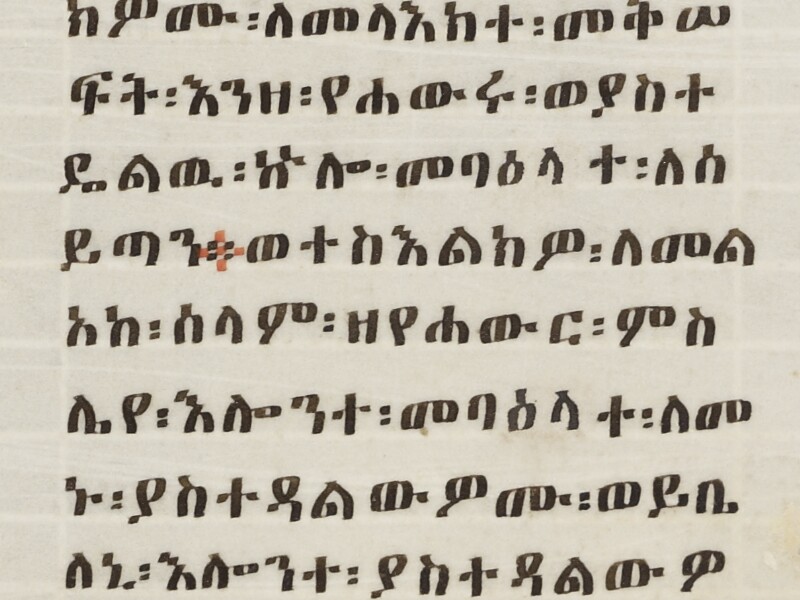 ክዎሙ፡ለመላእክተ፡መቅሠ
ፍት፡እንዘ፡የሐውሩ፡ወያስተ
ዴልዉ፡ኵሎ፡መባዕላተ፡ለሰ
ይጣን፨ወተስእልክዎ፡ለመል
አከ፡ሰላም፡ዘየሐውር፡ምስ
ሌየ፡እሎንተ፡መባዕላተ፡ለመ
ኑ፡ያስተዳልውዎሙ፡ወይቤ
ለኒ፡እሎንተ፡ያስተዳልውዎ